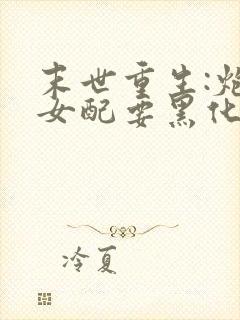 末世重生:炮
女配要黑化
冷夏